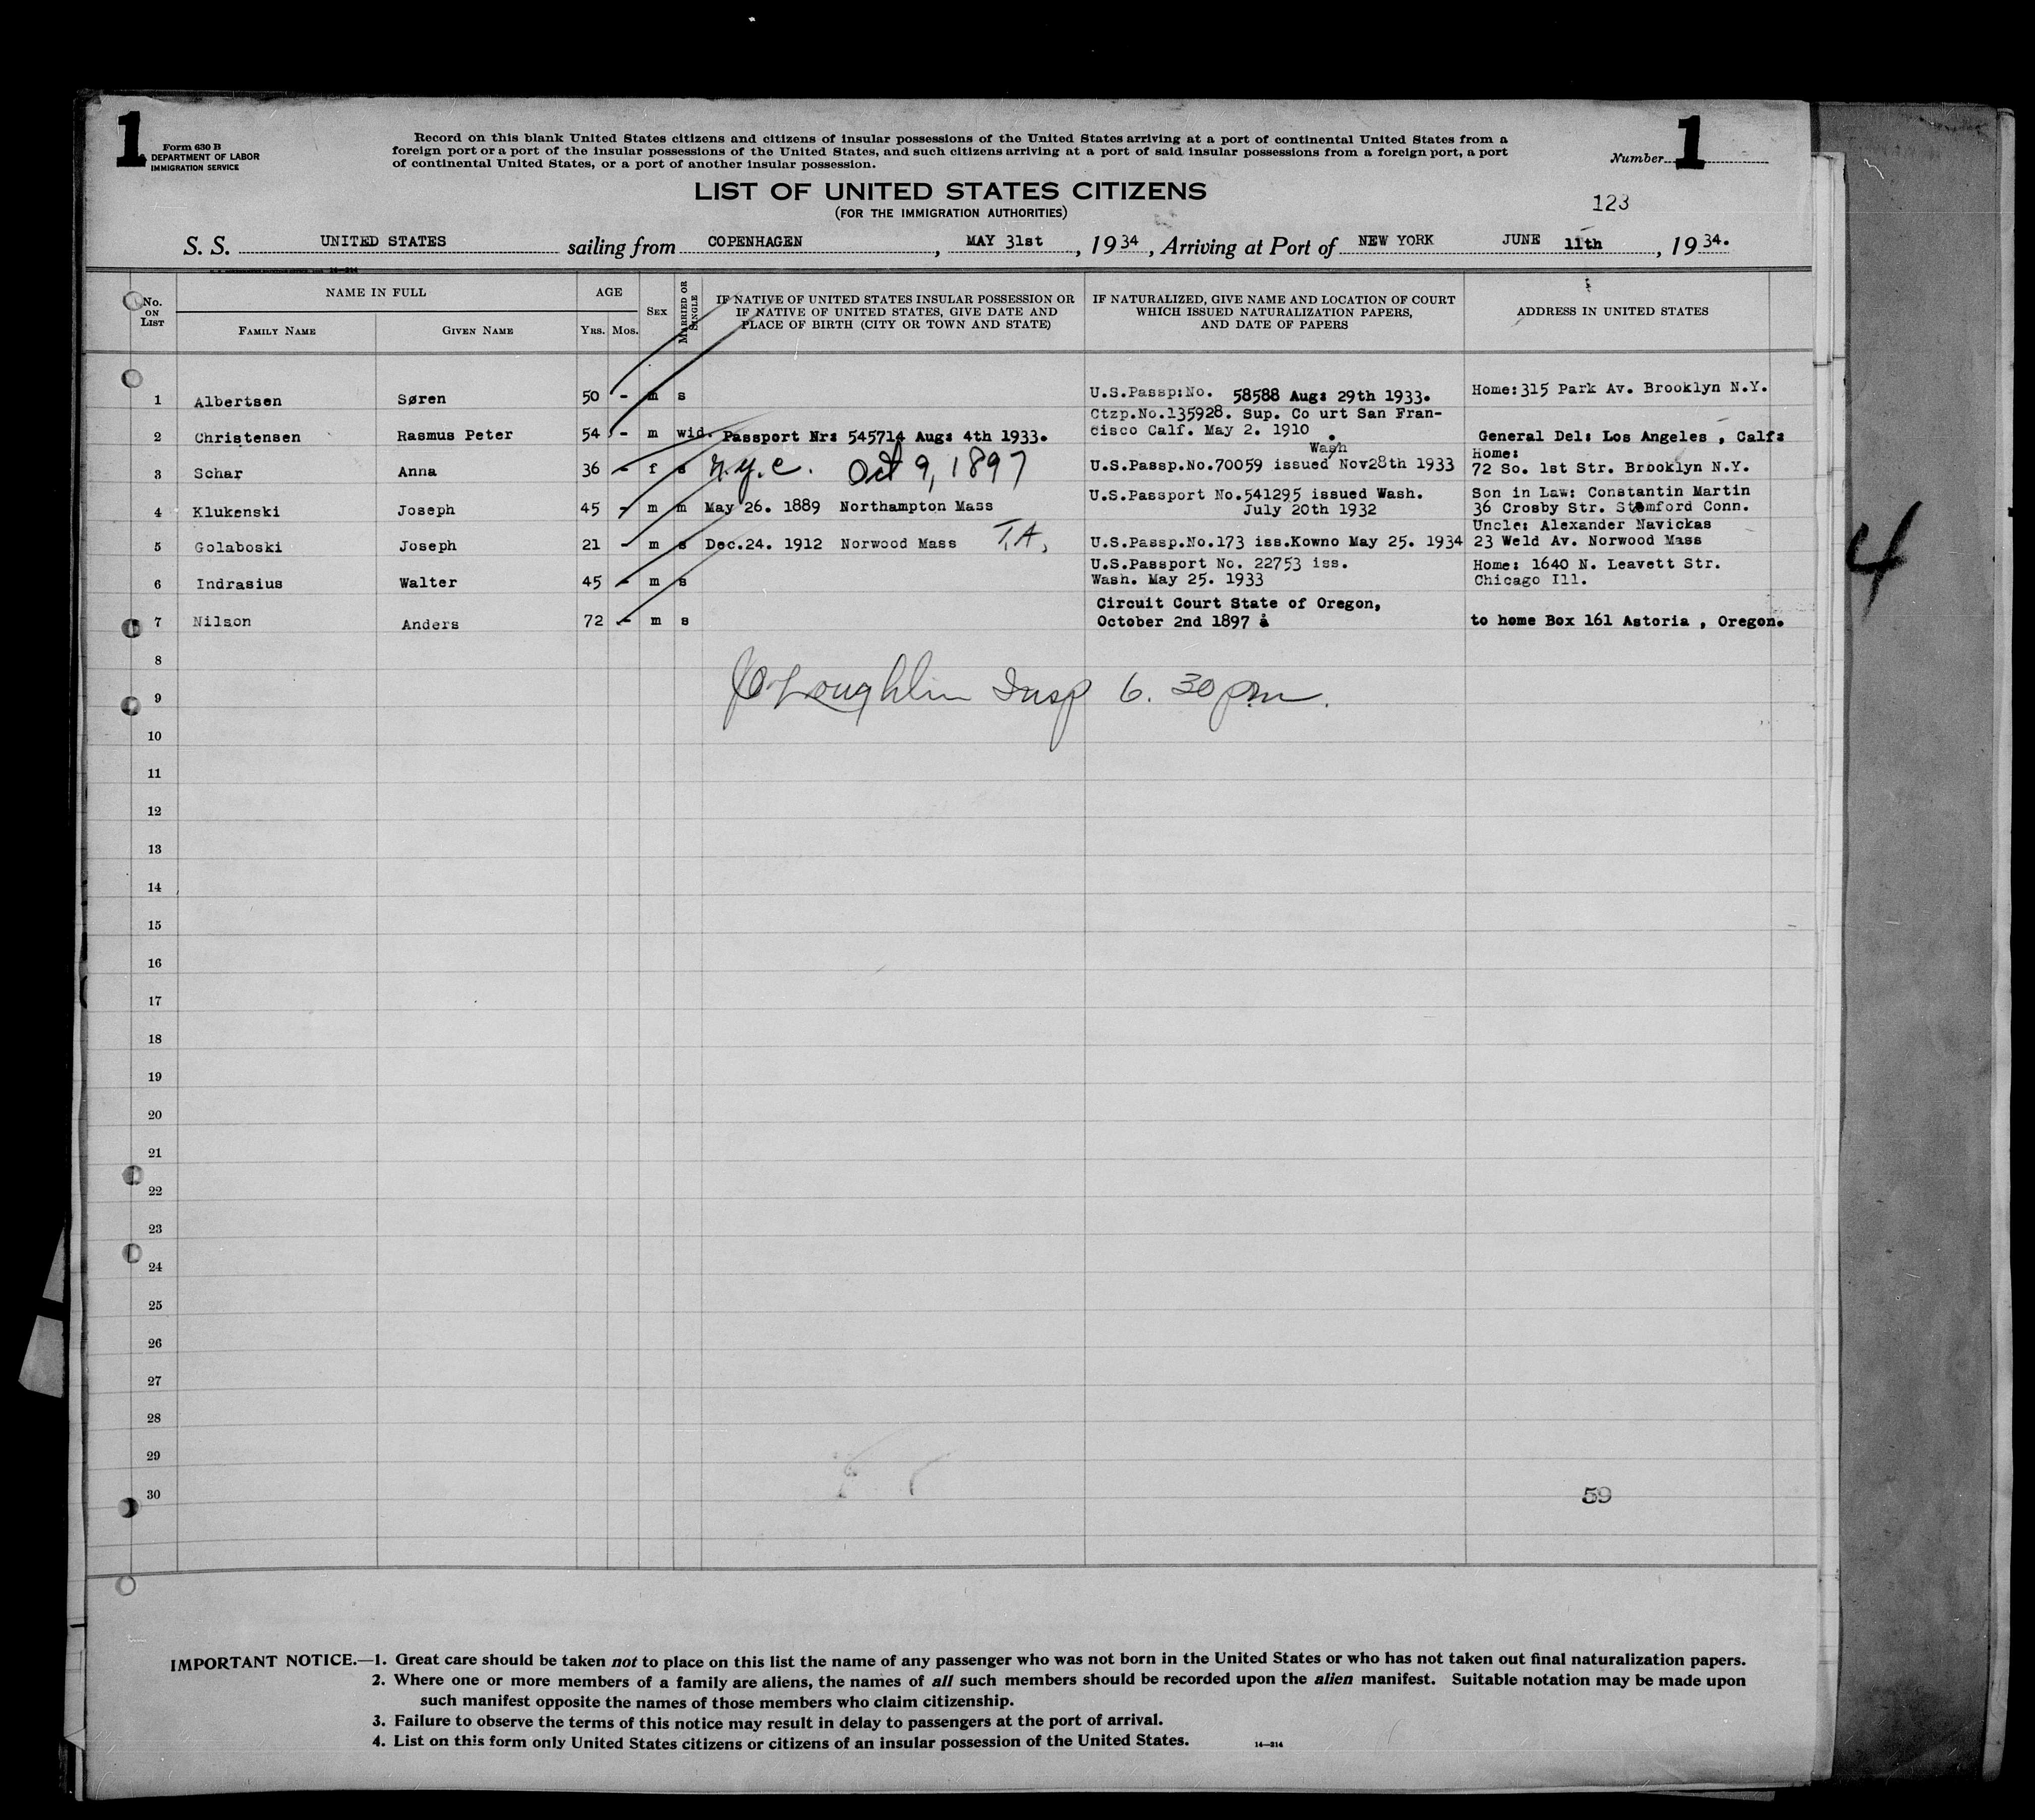 1
Form 630 B
DEPARTMENT OF LABOR
IMMIGRATION SERVICE
Record on this blank United States citizens and citizens of insular possessions of the United States arriving at a port of continental United States from a
foreign port or a port of the insular possessions of the United States, and such citizens arriving at a port of said insular possessions from a foreign port, a port
of continental United States, or a port of another insular possession.
Number 1
LIST OF UNITED STATES CITIZENS
(FOR THE IMMIGRATION AUTHORITIES)
123
S. S. UNITED STATES sailing from COPENHAGEN, MAY 31st, 1934, Arriving at Port of NEW YORK JUNE 11th, 1934.
No. ON LIST
NAME IN FULL
FAMILY NAME
GIVEN NAME
AGE
YRS. MOS.
SEX
MARRIED OR SINGLE
IF NATIVE OF UNITED STATES INSULAR POSSESSION OR
IF NATIVE OF UNITED STATES, GIVE DATE AND
PLACE OF BIRTH (CITY OR TOWN AND STATE)
IF NATURALIZED, GIVE NAME AND LOCATION OF COURT
WHICH ISSUED NATURALIZATION PAPERS,
AND DATE OF PAPERS
ADDRESS IN UNITED STATES
1 Albertsen Søren 50 - m s U.S.Passp:No. 58588 Aug: 29th 1933. Home:315 Park Av. Brooklyn N.Y.
Ctzp.No.135928. Sup. Co urt San Fran-
2 Christensen Rasmus Peter 54 - m wid. Passport Nr: 545714 Aug: 4th 1933. cisco Calf. May 2. 1910 . General Del: Los Angeles , Calf:
Wash Home:
3 Schar Anna 36 - f s N.Y.C. Oct 9, 1897 U.S.Passp.No.70059 issued Nov28th 1933 72 So. 1st Str. Brooklyn N.Y.
U.S.Passport No.541295 issued Wash. Son in Law: Constantin Martin
4 Klukenski Joseph 45 - m m May 26. 1889 Northampton Mass July 20th 1932 36 Crosby Str. Stamford Conn.
Uncle: Alexander Navickas
5 Golaboski Joseph 21 - m s Dec.24. 1912 Norwood Mass T.A, U.S.Passp.No.173 iss.Kowno May 25. 1934 23 Weld Av. Norwood Mass
U.S.Passport No. 22753 iss. Home: 1640 N. Leavett Str.
6 Indrasius Walter 45 - m s Wash. May 25. 1933 Chicago Ill.
Circuit Court State of Oregon,
7 Nilson Anders 72 - m s October 2nd 1897 to home Box 161 Astoria , Oregon.
8
O'Loughlin Insp 6. 30 pm.
9
10
11
12
13
14
15
16
17
18
19
20
21
22
23
24
25
26
27
28
29
30
59
4
IMPORTANT NOTICE.—1. Great care should be taken not to place on this list the name of any passenger who was not born in the United States or who has not taken out final naturalization papers.
2. Where one or more members of a family are aliens, the names of all such members should be recorded upon the alien manifest. Suitable notation may be made upon
such manifest opposite the names of those members who claim citizenship.
3. Failure to observe the terms of this notice may result in delay to passengers at the port of arrival.
4. List on this form only United States citizens or citizens of an insular possession of the United States.
14—214